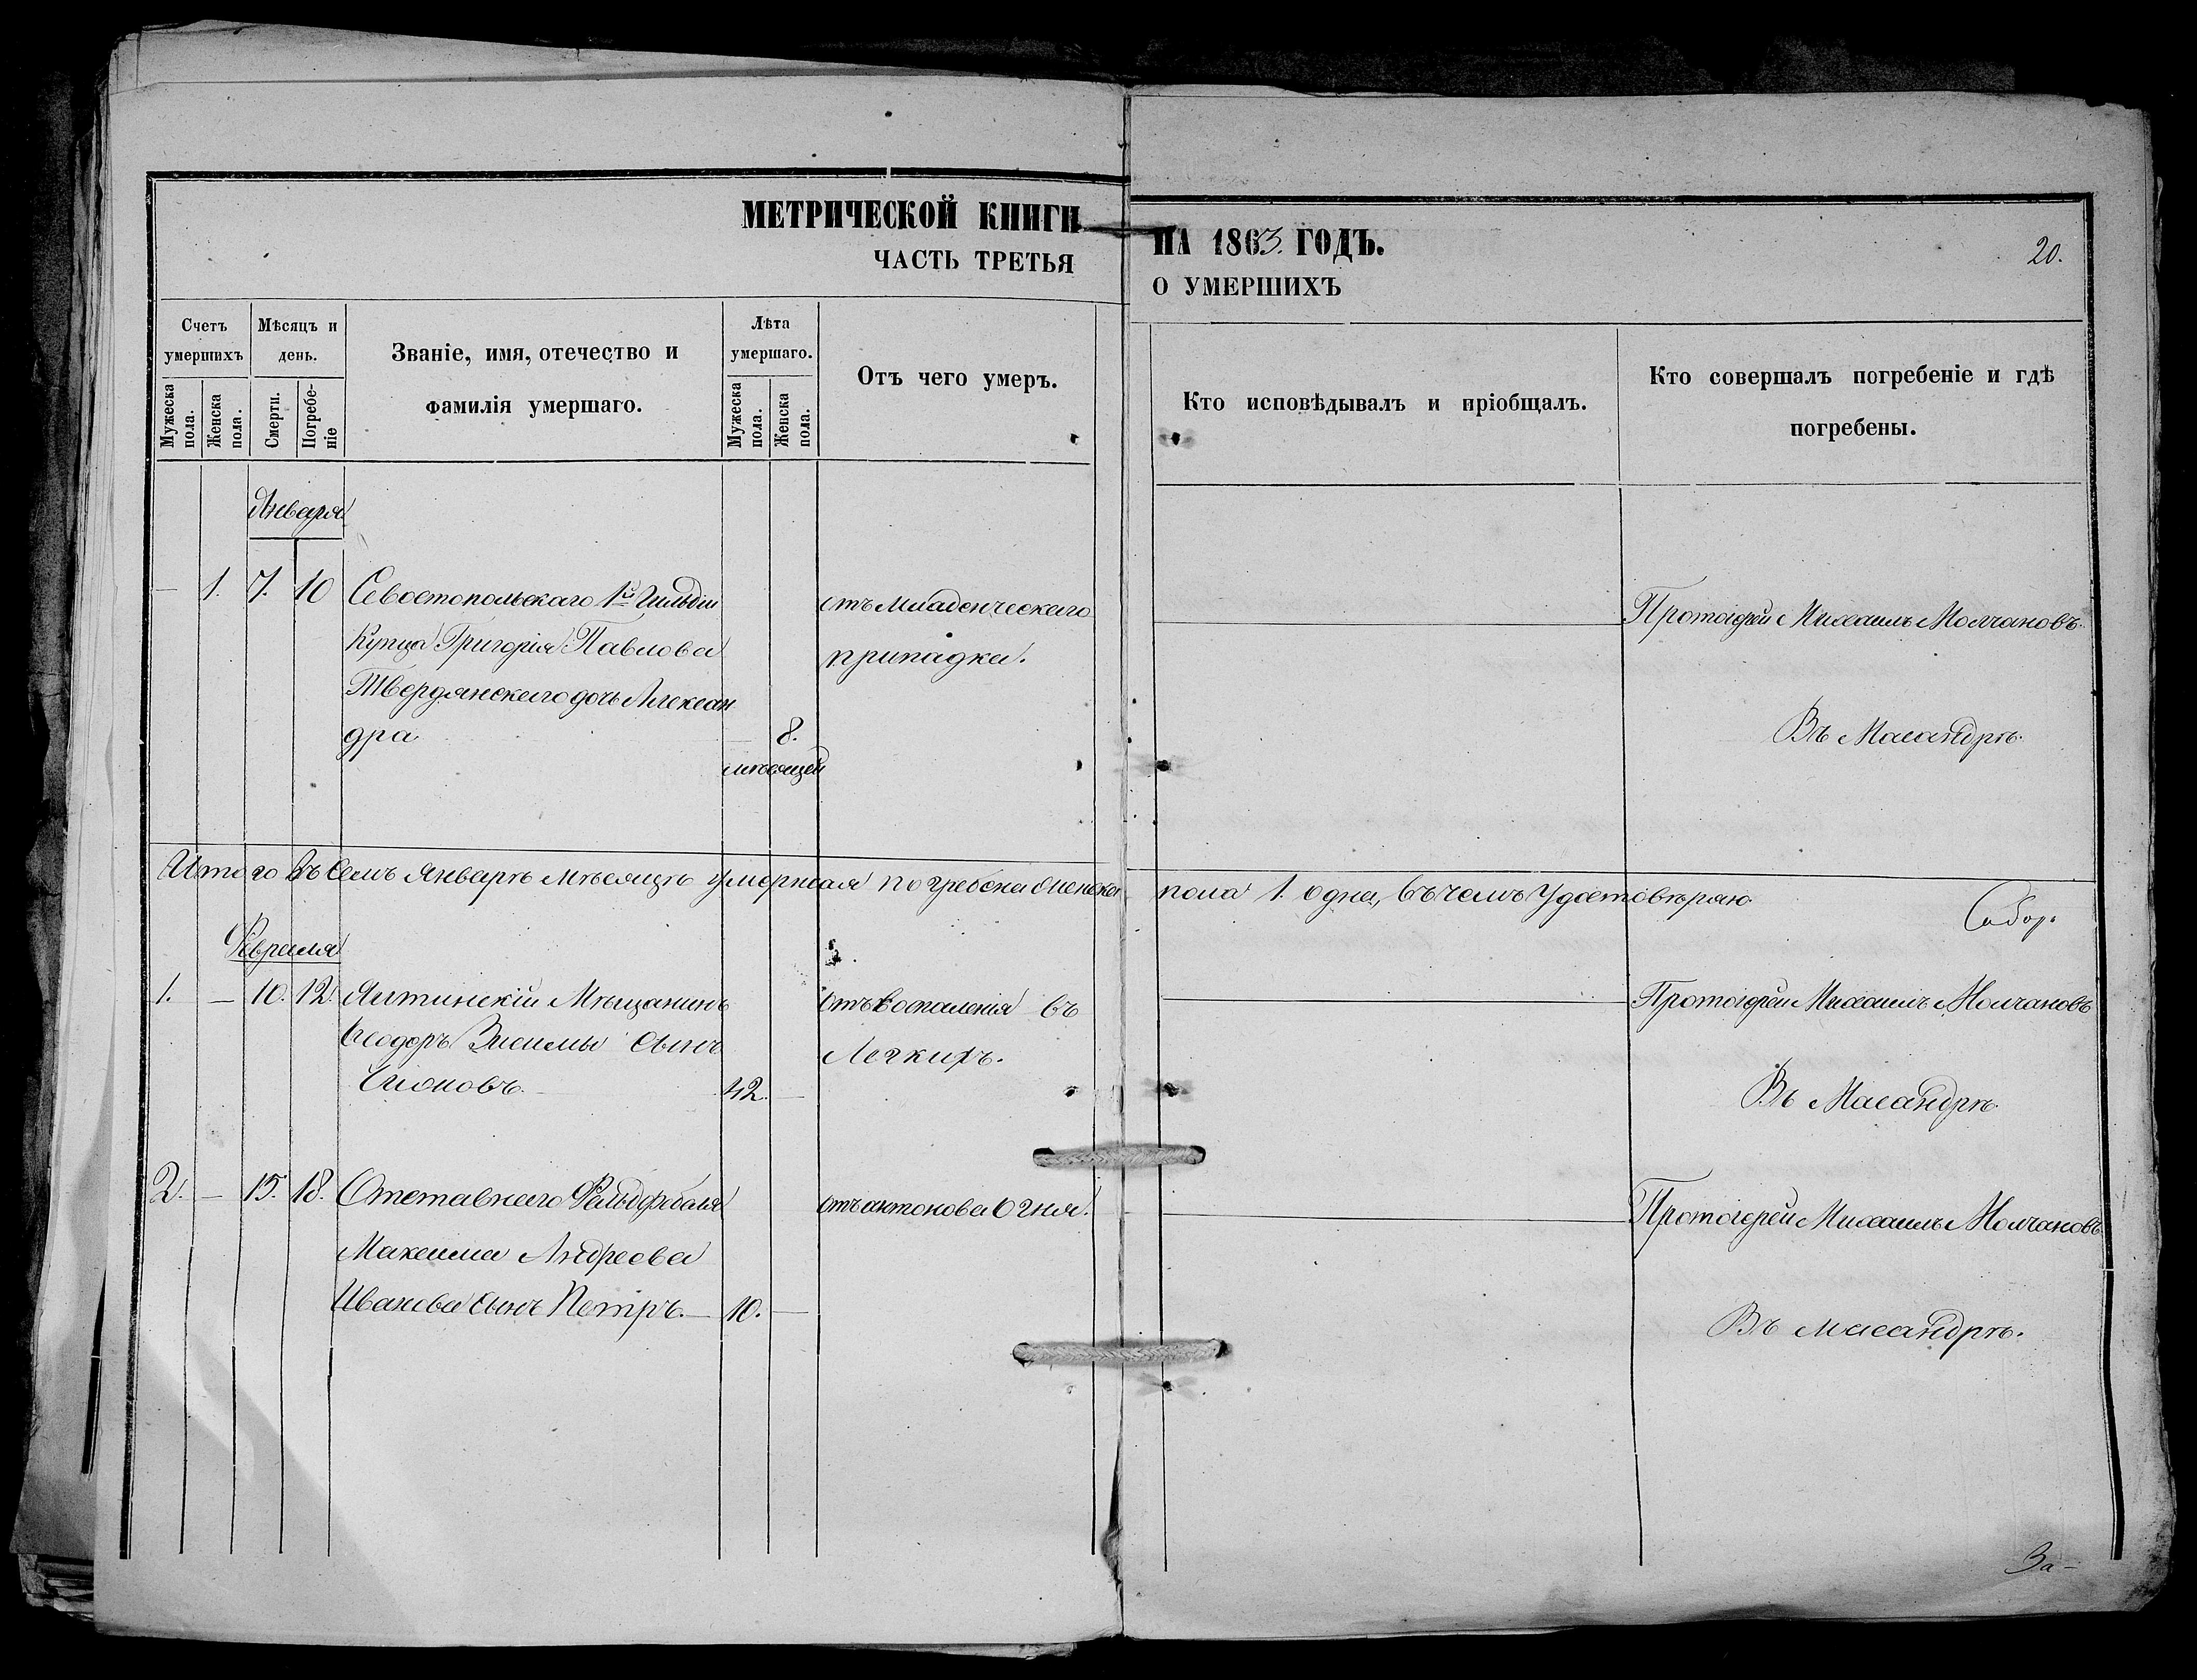 МЕТРИЧЕСКОЙ КНИГИ
НА 1863. ГОДЪ.
20.
ЧАСТЬ ТРЕТЬЯ
О УМЕРШИХЪ
Счетъ умершихъ
Мужеска пола.
Женска пола.
Мѣсяцъ и день.
Смерти.
Погребе-
ніе
Званіе, имя, отечество и
фамилія умершаго.
Лѣта умершаго.
Мужеска пола.
Женска пола.
Отъ чего умеръ.
Кто исповѣдывалъ и пріобщалъ.
Кто совершалъ погребеніе и гдѣ
погребены.
Января
— 1. 7. 10 Севостопольскаго 1й Гильдіи
Купца Григорія Павлова
Твердянскаго дочь Алексан
дра — 8.
мѣсяцей
отъ Младенческаго
припадка.
Протоіерей Михаилъ Молчановъ.
Въ Масандрѣ.
Итого въ Семъ Январѣ Мѣсяцѣ умершая погребена Женска пола 1. одна, въ чемъ Удостовѣряю
Собор.
Февраля
1. — 10. 12. Ялтинскій Мѣщанинъ
Ѳеодоръ сынъ
42. —
отъ воспаления въ
Легкихъ.
Протоіерей Михаилъ Молчановъ
Въ Масандрѣ.
2. — 15. 18. Отставнаго Фельдфебеля
Максима Андреева
Иванова сынъ Петръ. — 10. —
отъ антонова Огня.
Протоіерей Михаилъ Молчановъ
Въ Масандрѣ.
За-